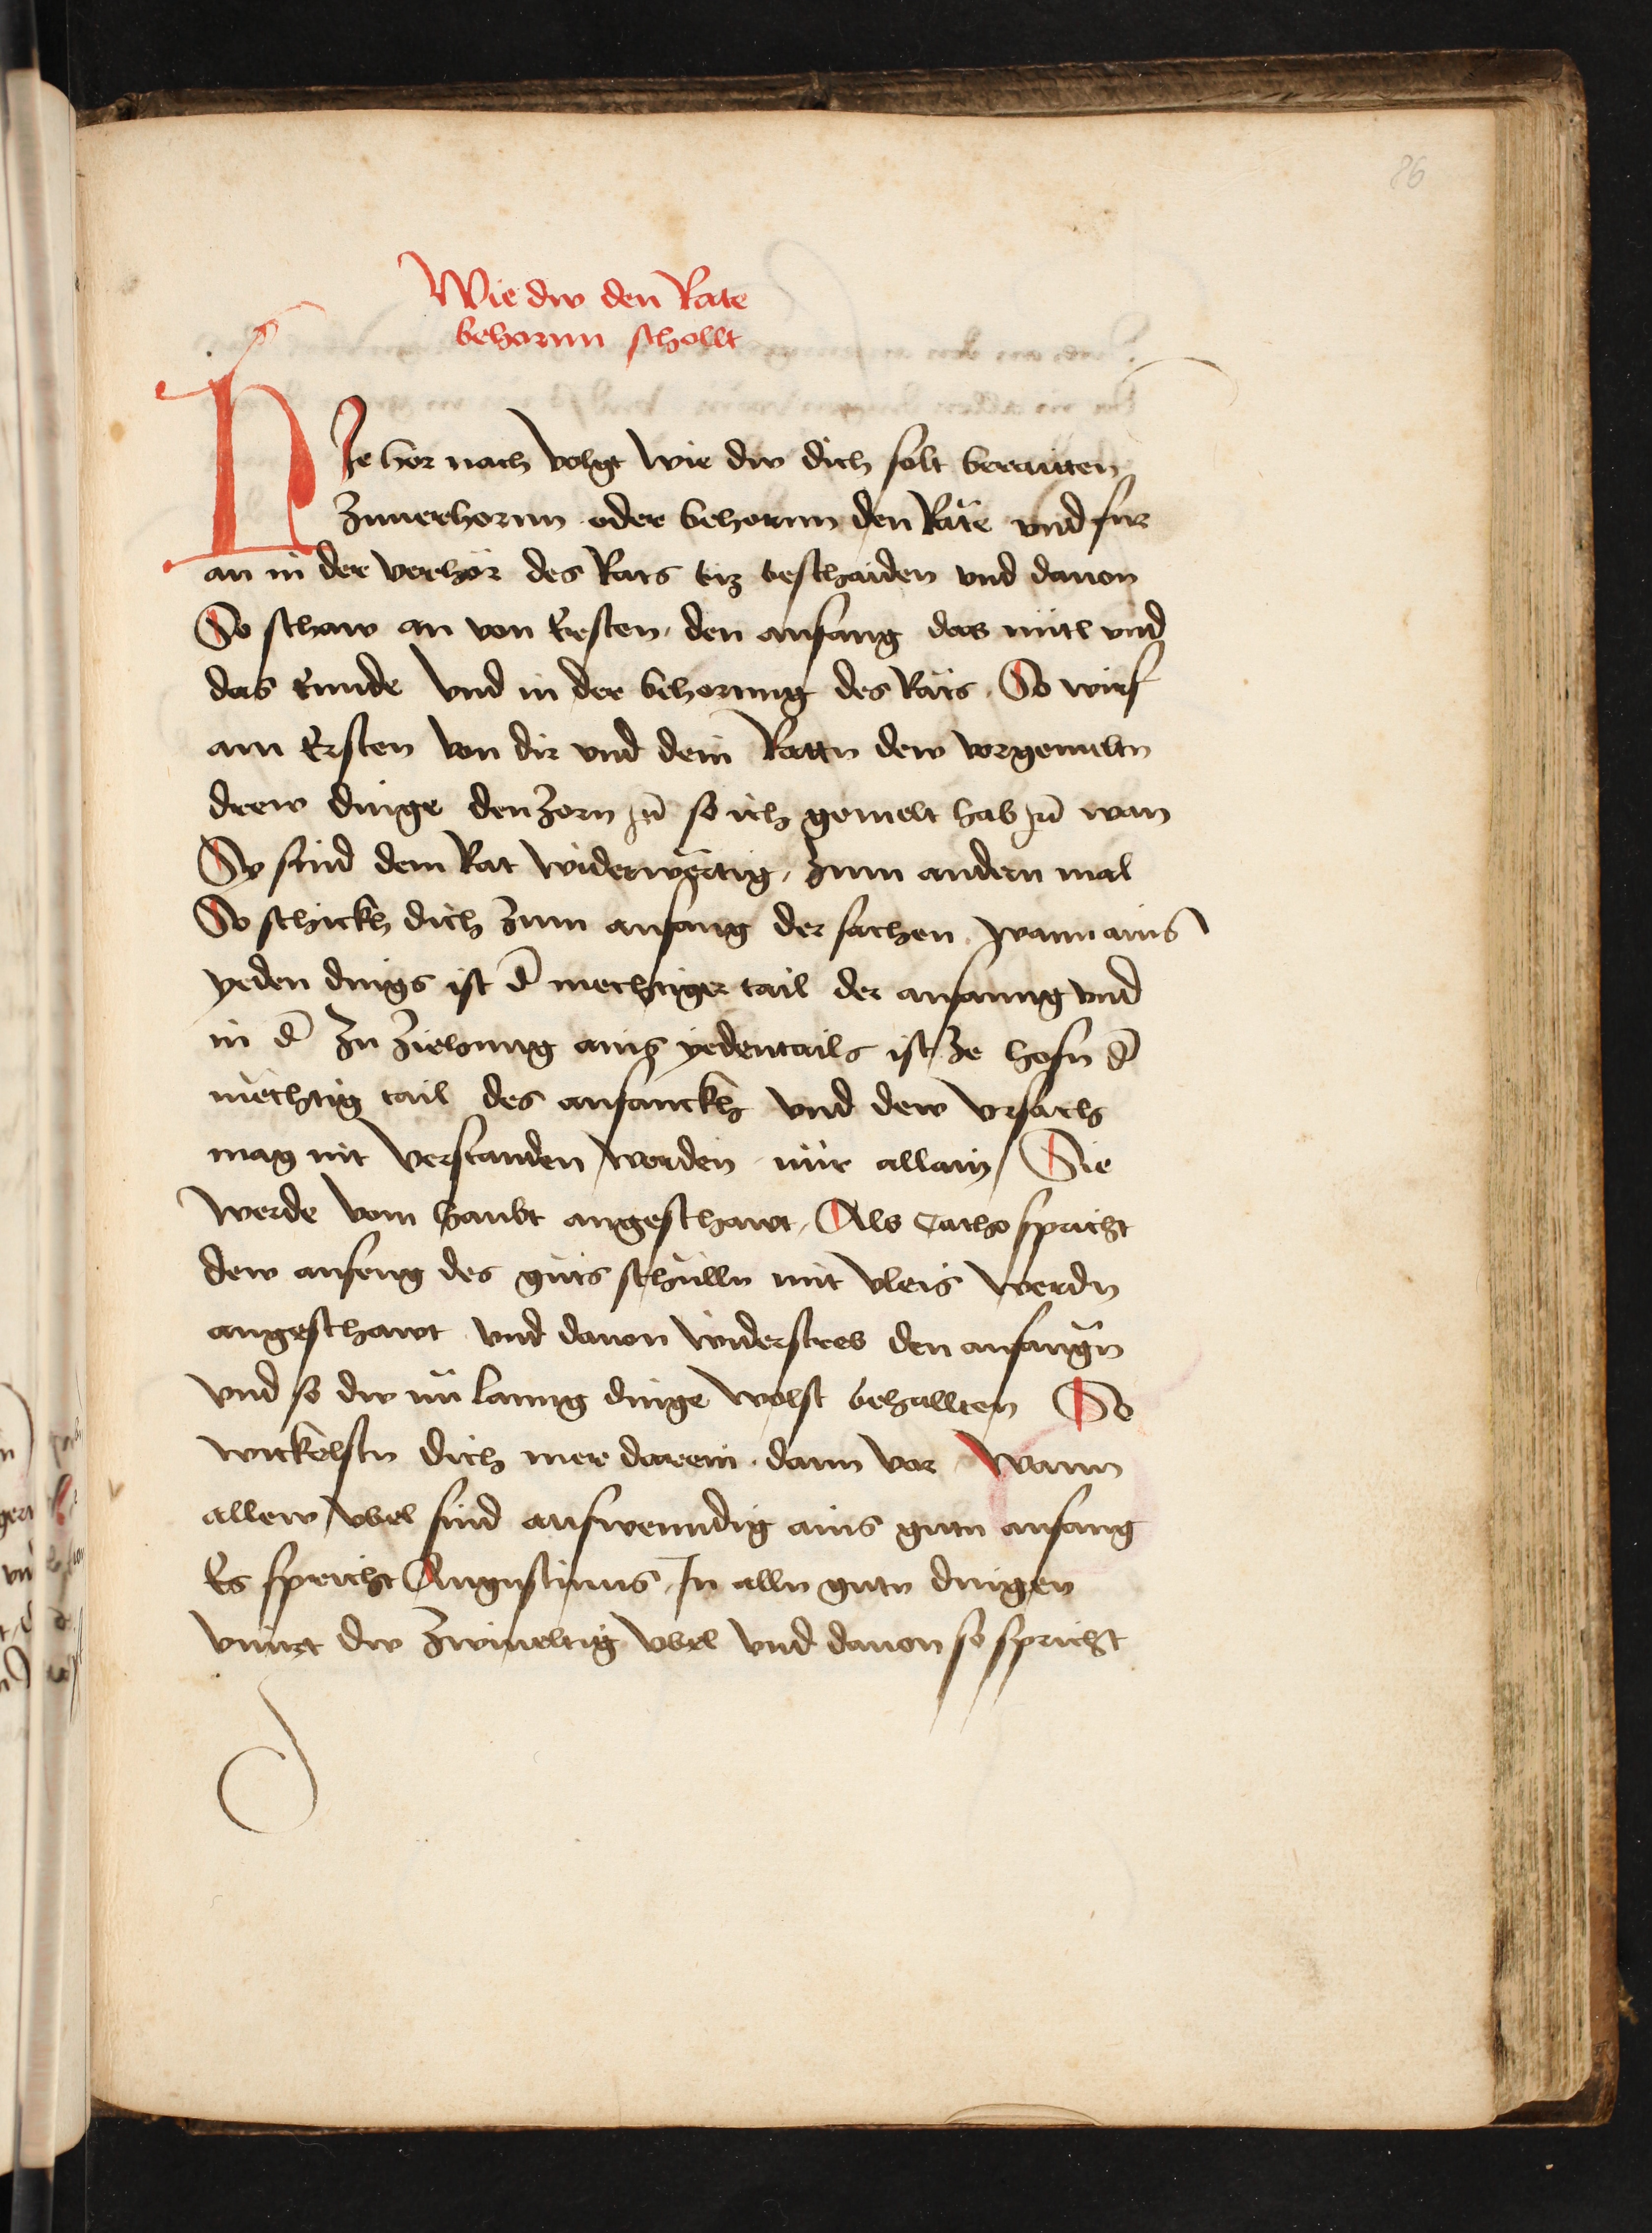 86
Wie dw den Rate
behornn schollt
HJe hor nach volgt wie dw dich solt beraitten
Zuuerhornn oder behornn den Räte vnd fur
an in der verhör des Rats biz beschaiden vnd dauon
So schaw an von Ersten den anfang das mitl vnd
das Ennde Vnd in der behornng des Räts. So wirf
am Ersten von dir vnd dein Rattn dew vorgemeltn
drew dinge den Zorn zc̄ so ich gemelt hab zc̄ wan
Sy sind dem Rat widerwertig, Zum andern mal
So schickh dich Zum anfang der sachen. wann ains
yeden dings ist d̄ mechtiger tail der anfanng vnd
in d̄ Zu Ziehung ains yedentails ist Ze hofn d̄
mechtig tail des anfanckh vnd dew vrsach
mag nit verstanden werden nur allain Sie
werde vom haubt angeschawt, Als Catho spricht
dew anfeng des guts schulln mit vleis werdn
angeschawt vnd dauon widerstreb den anfangn
vnd so dw nu lanng dinge wolst behallten So
wickelstu dich mer darein dann vor Wann
allew vbel sind auswenndig ains gutn anfang
Es spricht Augustinus, Jn alln gutn dingen
vinnt dw Zwiueltig vbel vnd dauon so spricht